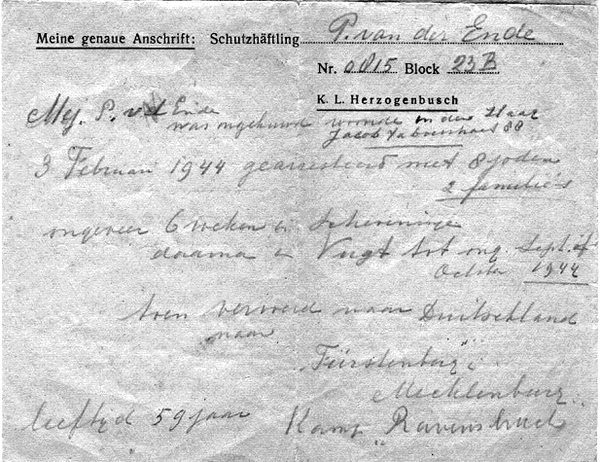 Meine genaue Anschrift: Schutzhäftling P. van der Ende
Nr. 0815 Block 23B
K. L. Herzogenbusch
Mej. P. v d Ende
was ongehuwd woonde in den Haag
Jacob 88
3 Februari 1944 gearresteerd met 8 joden
2 familie's
ongeveer 6 weken in Scheveningen
daarna in Vugt tot ong. Sept. of
October 1944
toen vervoerd naar Duitschland
naar
Fürstenberg
Mecklenburg
leeftijd 59 jaar Kamp "Ravensbruck